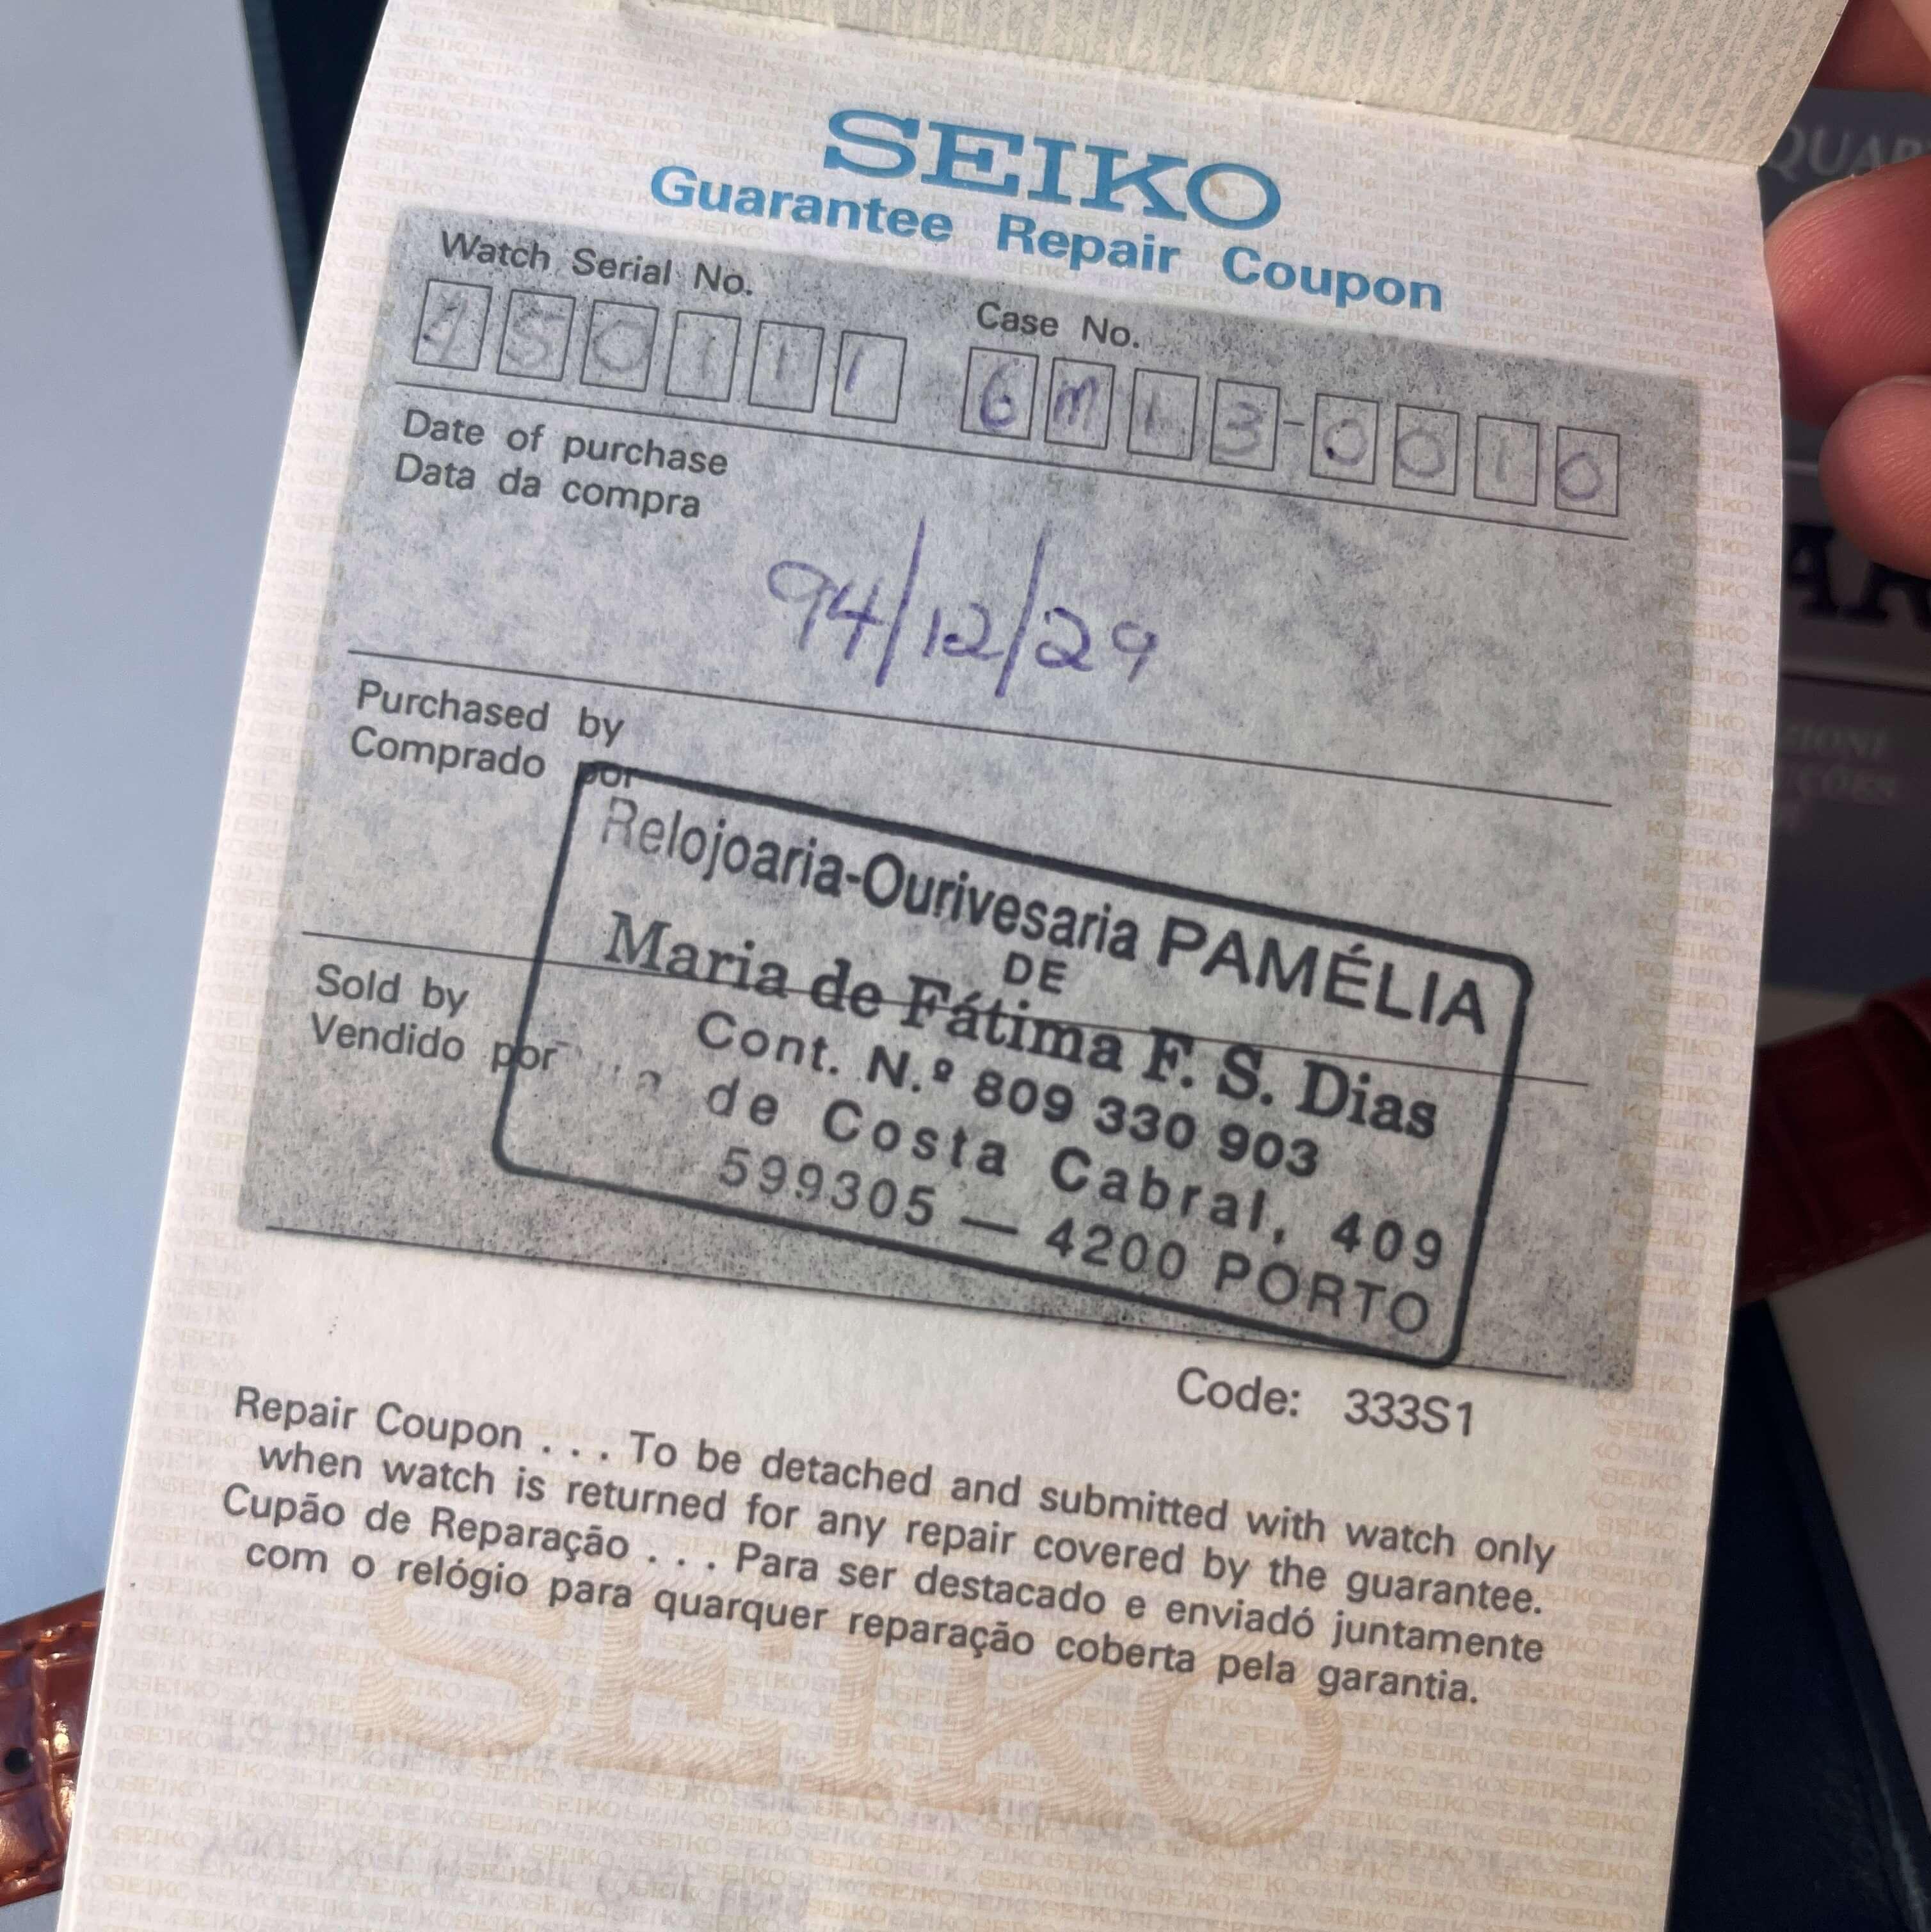 SEIKO
Guarantee Repair Coupon
Watch Serial No.
450111
Case No.
6M13-0010
Date of purchase
Data da compra
94/12/29
Purchased by
Comprado por
Relojoaria-Ourivesaria PAMÉLIA
DE
Maria de Fátima F. S. Dias
Cont. N.º 809 330 903
de Costa Cabral, 409
599305 — 4200 PORTO
Sold by
Vendido por
Code: 333S1
Repair Coupon . . . To be detached and submitted with watch only
when watch is returned for any repair covered by the guarantee.
Cupão de Reparação . . . Para ser destacado e enviadó juntamente
com o relógio para quarquer reparação coberta pela garantia.
SEIKO